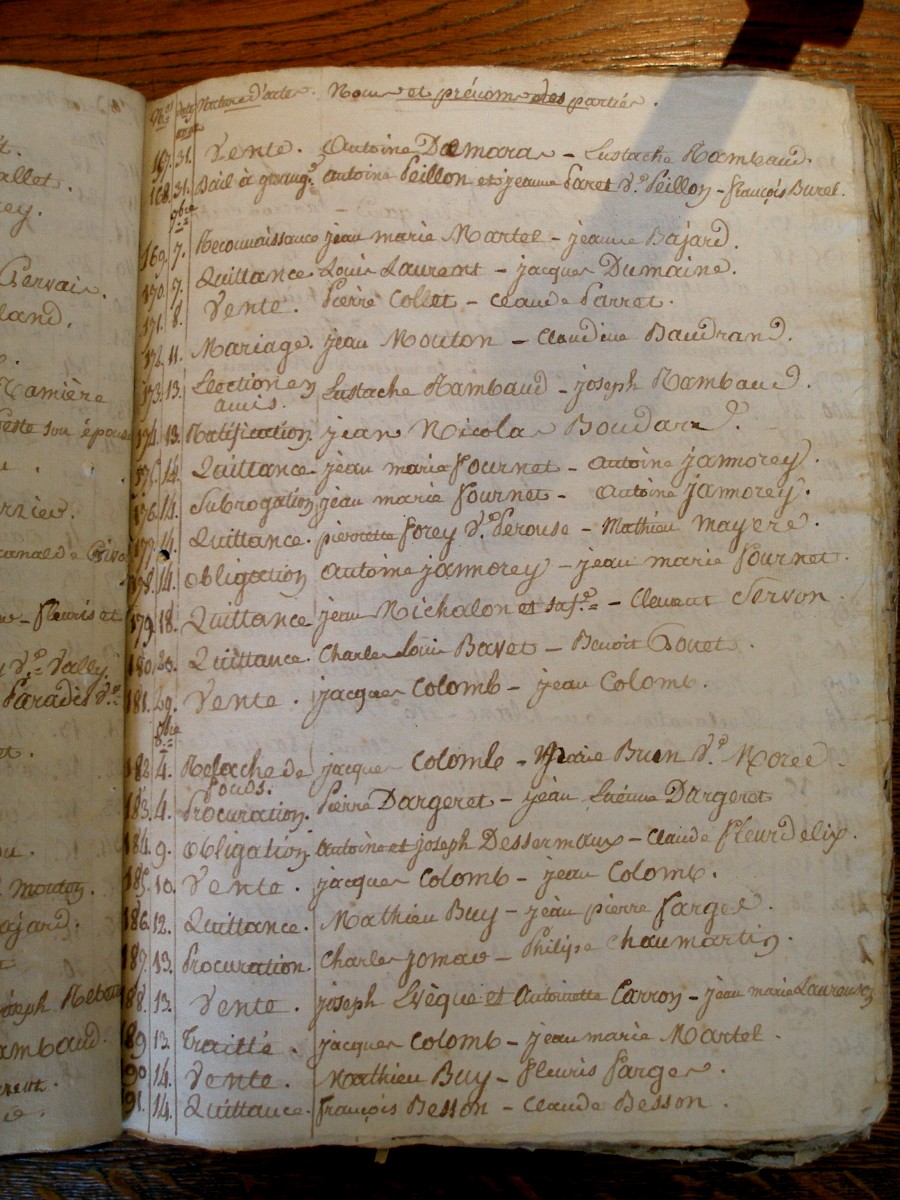 Nos dates Nature d'actes. Noms et prénoms des parties.
167. 31. Vente. Antoine Damaras - Eustache Rambaud.
168. 31. Bail à grang.e antoine Peillon et jeanne Paret v.e Peillon - françois Buret.
9bre
169. 7. Reconnaissance jean marie Martel - jeanne Bajard.
170. 7. Quittance Louis Laurent - jacques Dumaine.
171. 8. Vente. Pierre Collet - Claude Parret.
172. 11. Mariage. jean Mouton - Claudine Baudrand.
173. 13. Election en
amis. Eustache Rambaud - joseph Rambaud.
174. 13. Ratification jean Nicolas Boudard.
175. 14. Quittance jean marie fournet - Antoine janmorey.
176. 14. Subrogation jean marie fournet - Antoine janmorey.
177. 14. Quittance. pierrette forey v.e Perouse - Mathieu mayere.
178. 14. Obligation Antoine janmorey - jean marie fournet.
179. 18. Quittance jean Michalon et - Clement Servon.
180. 20. Quittance. Charles Louis Bavet - Benoit Gonet.
181. 29. Vente. jacques Colomb - jean Colomb.
182. 4. Relache de
fonds. jacques Colomb - Marie Buen v.e Morel.
183. 4. Procuration. Pierre Dargeret - jean Etienne Dargeret
184. 9. Obligation. Antoine et joseph Dessermaux - Claude fleurdelix.
185. 10. Vente. jacques Colomb - jean Colomb.
186. 12. Quittance. Mathieu Buy - jean pierre farges.
187. 13. Procuration. Charles jomar - Philipe Chaumartin.
188. 13. Vente. joseph Evêque et Antoinette Carron - jean marie Laurenson
189 13. Traitté. jacques Colomb - jean marie Martel.
90 14. Vente. Mathieu Buy - fleuris farges.
91. 14. Quittance. françois Besson - Claude Besson.